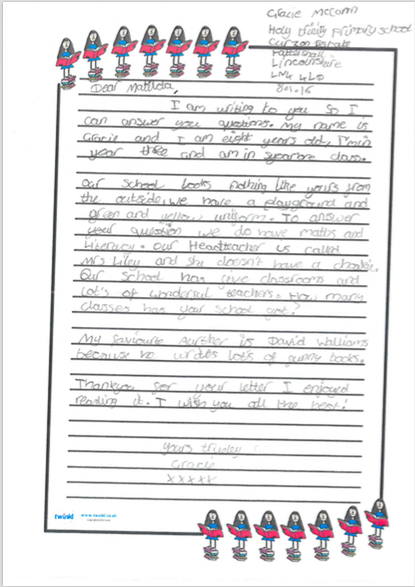 Gracie McCann
Holy trinity primary school
Curzon Estate
Tattershall
Lincolnshire
LN4 4LD
8.01.16
Dear Matilda,
I am writing to you so I
can answer you questions. My name is
Gracie and I am eight years old, I'm in
year three and am in sycamore class.
Our school looks nothing like yours from
the outside, we have a playground and
green and yellow uniform. To answer
your question we do have maths and
Literacy. Our Headteacher is called
Mrs Liley and she doesn't have a
Our School has five classrooms and
Lot's of wonderful teachers. How many
classes has your school got?
My faviourite aurther is David Williams
because he writes lot's of funny books.
Thankyou for your letter I enjoyed
reading it. I wish you all the best!
Yours truley
Gracie
xxxxx
twinkl www.twinkl.co.uk